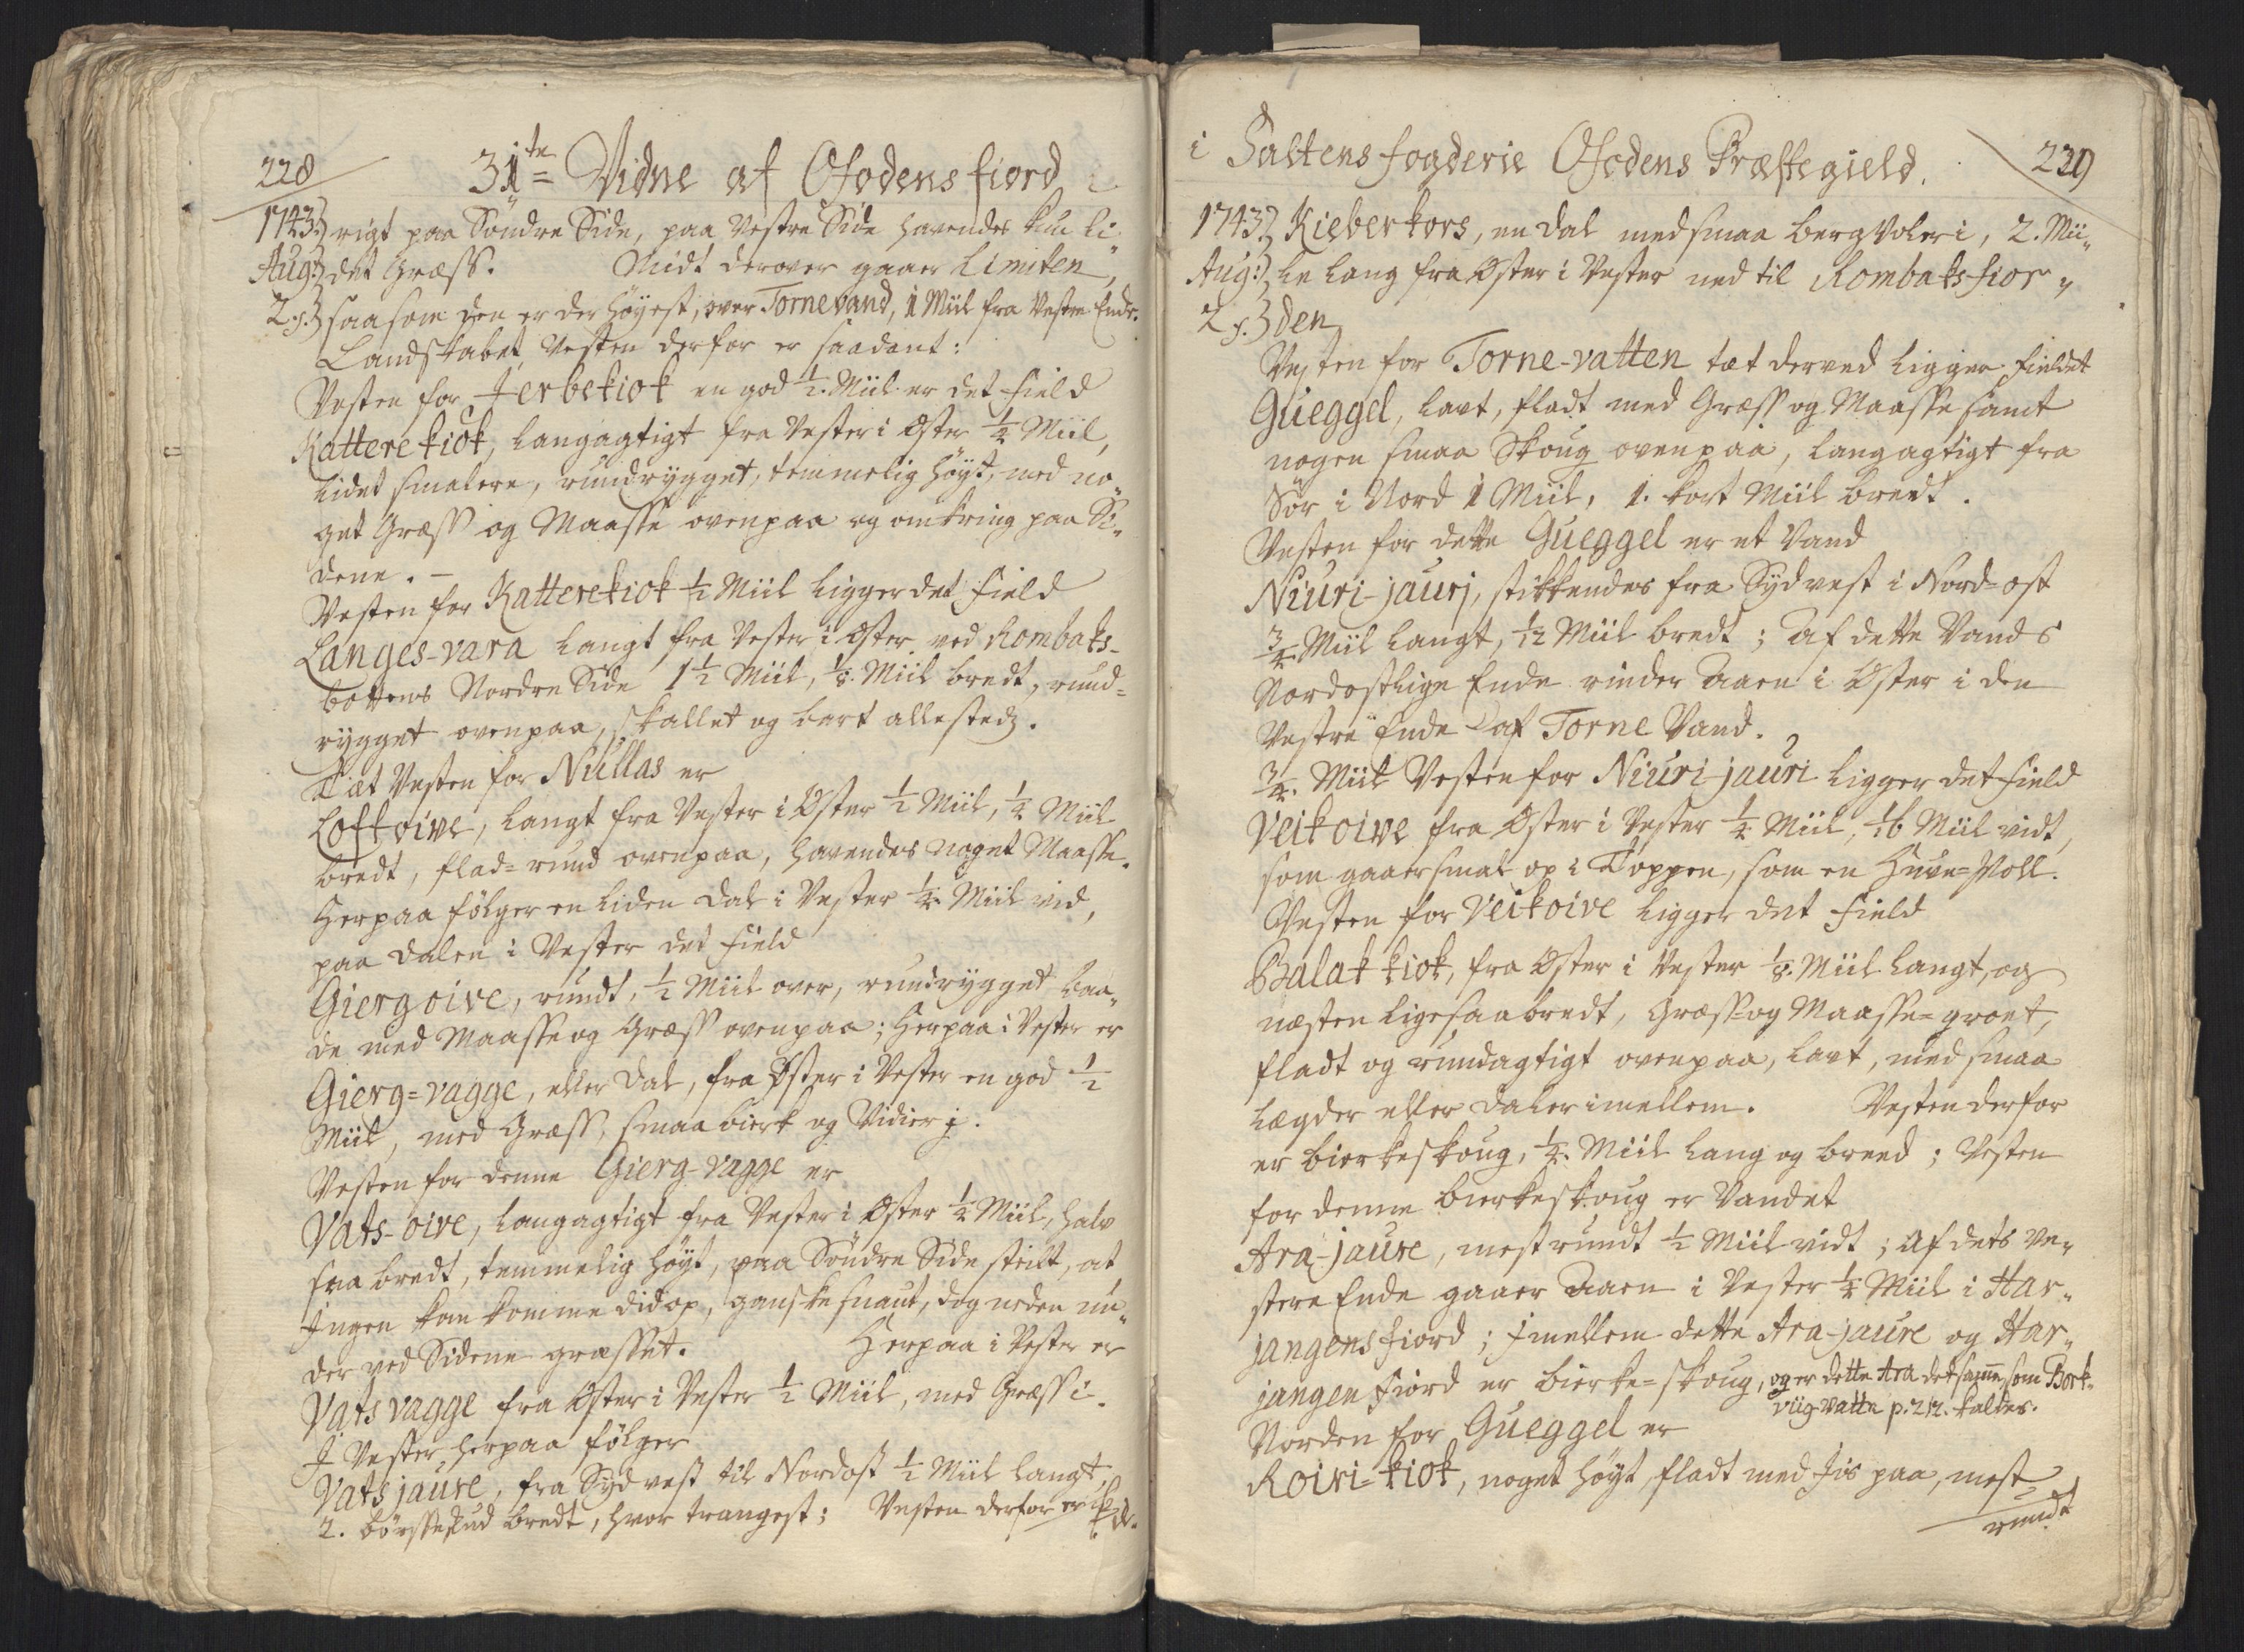 228
31te Vidne af Ofodens fiord
1743 rigt paa Søndre Side, paa Vestre Side havendes kun li
Aug: det Græss. Midt derover gaaer Limiten,
2 saasom den er der høyest, over Tornevand, 1 Miil fra Vestre Ende.
Landskabet Vesten derfor er saadant:
Vesten for Jerbekiok en god 1/2 Miil er det Field
Katterekiok, langagtigt fra Vester i Øster 1/4 Miil,
lidet smalere, rundrygget, temmelig høyt, med no„
get Græss og Maasse ovenpaa og omkring paa Si„
derne. –
Vesten for Katterekiok 1/2 Miil ligger det Field
Langes-vara langt fra Vester i Øster ved Rombaks-
bottens Nordre Side 1 1/2 Miil, 1/8 Miil bredt, rund=
rygget ovenpaa, skallet og bart allesteds.
Tæt Vesten for Niullas er
Loftoive, langt fra Vester i Øster 1/2 Miil, 1/4 Miil
bredt, flad=rund ovenpaa, havendes noget Maasse.
Herpaa følger en liden Dal i Vester 1/4 Miil vid,
paa Dalen i Vester det Field
Giergoive, rundt, 1/2 Miil over, rundrygget baa„
de med Maasse og Græss ovenpaa; Herpaa i Vester er
Gierg=vagge, eller Dal, fra Øster i Vester en god 1/2
Miil, med Græss, smaa bierk og Vidier j.
Vesten for denne Gierg-vagge er
Vats-oive, langagtigt fra Vester i Øster 1/4 Miil, halv
saa bredt, temmelig høyt, paa Søndre Side steilt, at
Ingen kan komme did op, ganske snaut, dog neden un„
der ved Siderne græsset. Herpaa i Vester er
Vatsvagge fra Øster i Vester 1/2 Miil, med Græss i.
I Vester herpaa følger
Vatsjaure, fra Sydvest til Nordost 1/2 Miil langt,
2. børsseskud bredt, hvor trangest; Vesten derfor er
i Saltens fogderie Ofodens Præstegield.
229
1743 Kieberkors, en Dal med smaa berg Voler i, 2. Mii„
Aug: le lang fra Øster i Vester ned til Rombaksfior„
2 den
Vesten for Torne-vatten tæt derved ligger Fieldet
Gueggel, lavt, fladt med Græss og Maasse samt
nogen smaa Skoug ovenpaa, langagtigt fra
Sør i Nord 1 Miil, 1. kort Miil bredt.
Vesten for dette Gueggel er et Vand
Niuri-jaurj, stikkendes fra Sydvest i Nord=ost
3/4 Miil langt, 1/12 Miil bredt; Af dette Vands
Nordostlige Ende rinder Aaen i Øster i den
Vestre Ende af Torne Vand.
3/4 Miil Vesten for Niuri-jauri ligger det Field
Veikoive fra Øster i Vester 1/4 Miil, 1/16 Miil vidt,
som gaaer smal op i Toppen, som en Huve=Poll.
Vesten for Veikoive ligger det Field
Balak kiok, fra Øster i Vester 1/8 Miil langt, og
næsten ligesaa bredt, Græss= og Maasse=groet,
fladt og rundagtigt ovenpaa, lavt, med smaa
Lægder eller Daler imellem. Vesten derfor
er bierkeskoug, 1/4 Miil lang og breed; Vesten
for denne bierkeskoug er Vandet
Ara-jaure, mest rundt 1/2 Miil vidt; Af dets Ve„
stere Ende gaaer Aaen i Vester 1/4 Miil i Har„
jangensfiord; Imellem dette Ara-jaure og Har„
jangen fiord er bierke=skoug, og er dette Ara det samme som Bork„
viig-vatten p. 212. kaldes.
Norden for Gueggel er
Roivi-kiok, noget høyt, fladt med Iis paa, mest
rundt